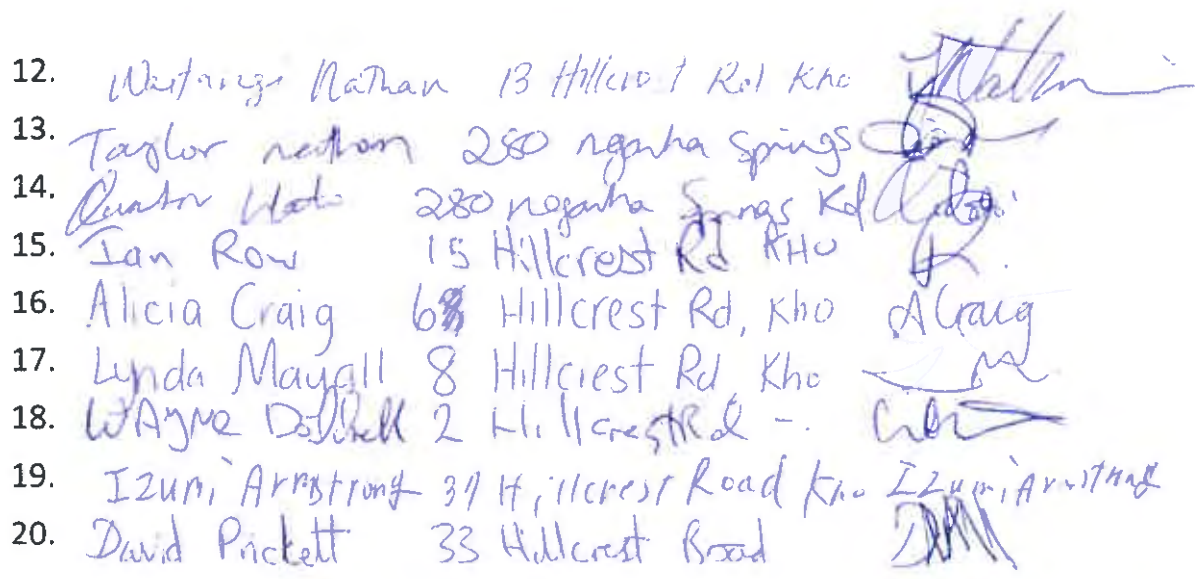 12. Nathan 13 Hillcrest Rd Kho
13. Taylor nathan 280 ngawha Springs
14. 280 ngawha Springs Rd
15. Ian Row 15 Hillcrest Rd KHO
16. Alicia Craig 6 Hillcrest Rd, Kho A Craig
17. Lynda Mayall 8 Hillcrest Rd, Kho
18. WAyne 2 Hillcrest Rd -.
19. Izumi Armstrong 31 Hillcrest Road Kho Izumi Armstrong
20. David Prickett 33 Hillcrest Broad